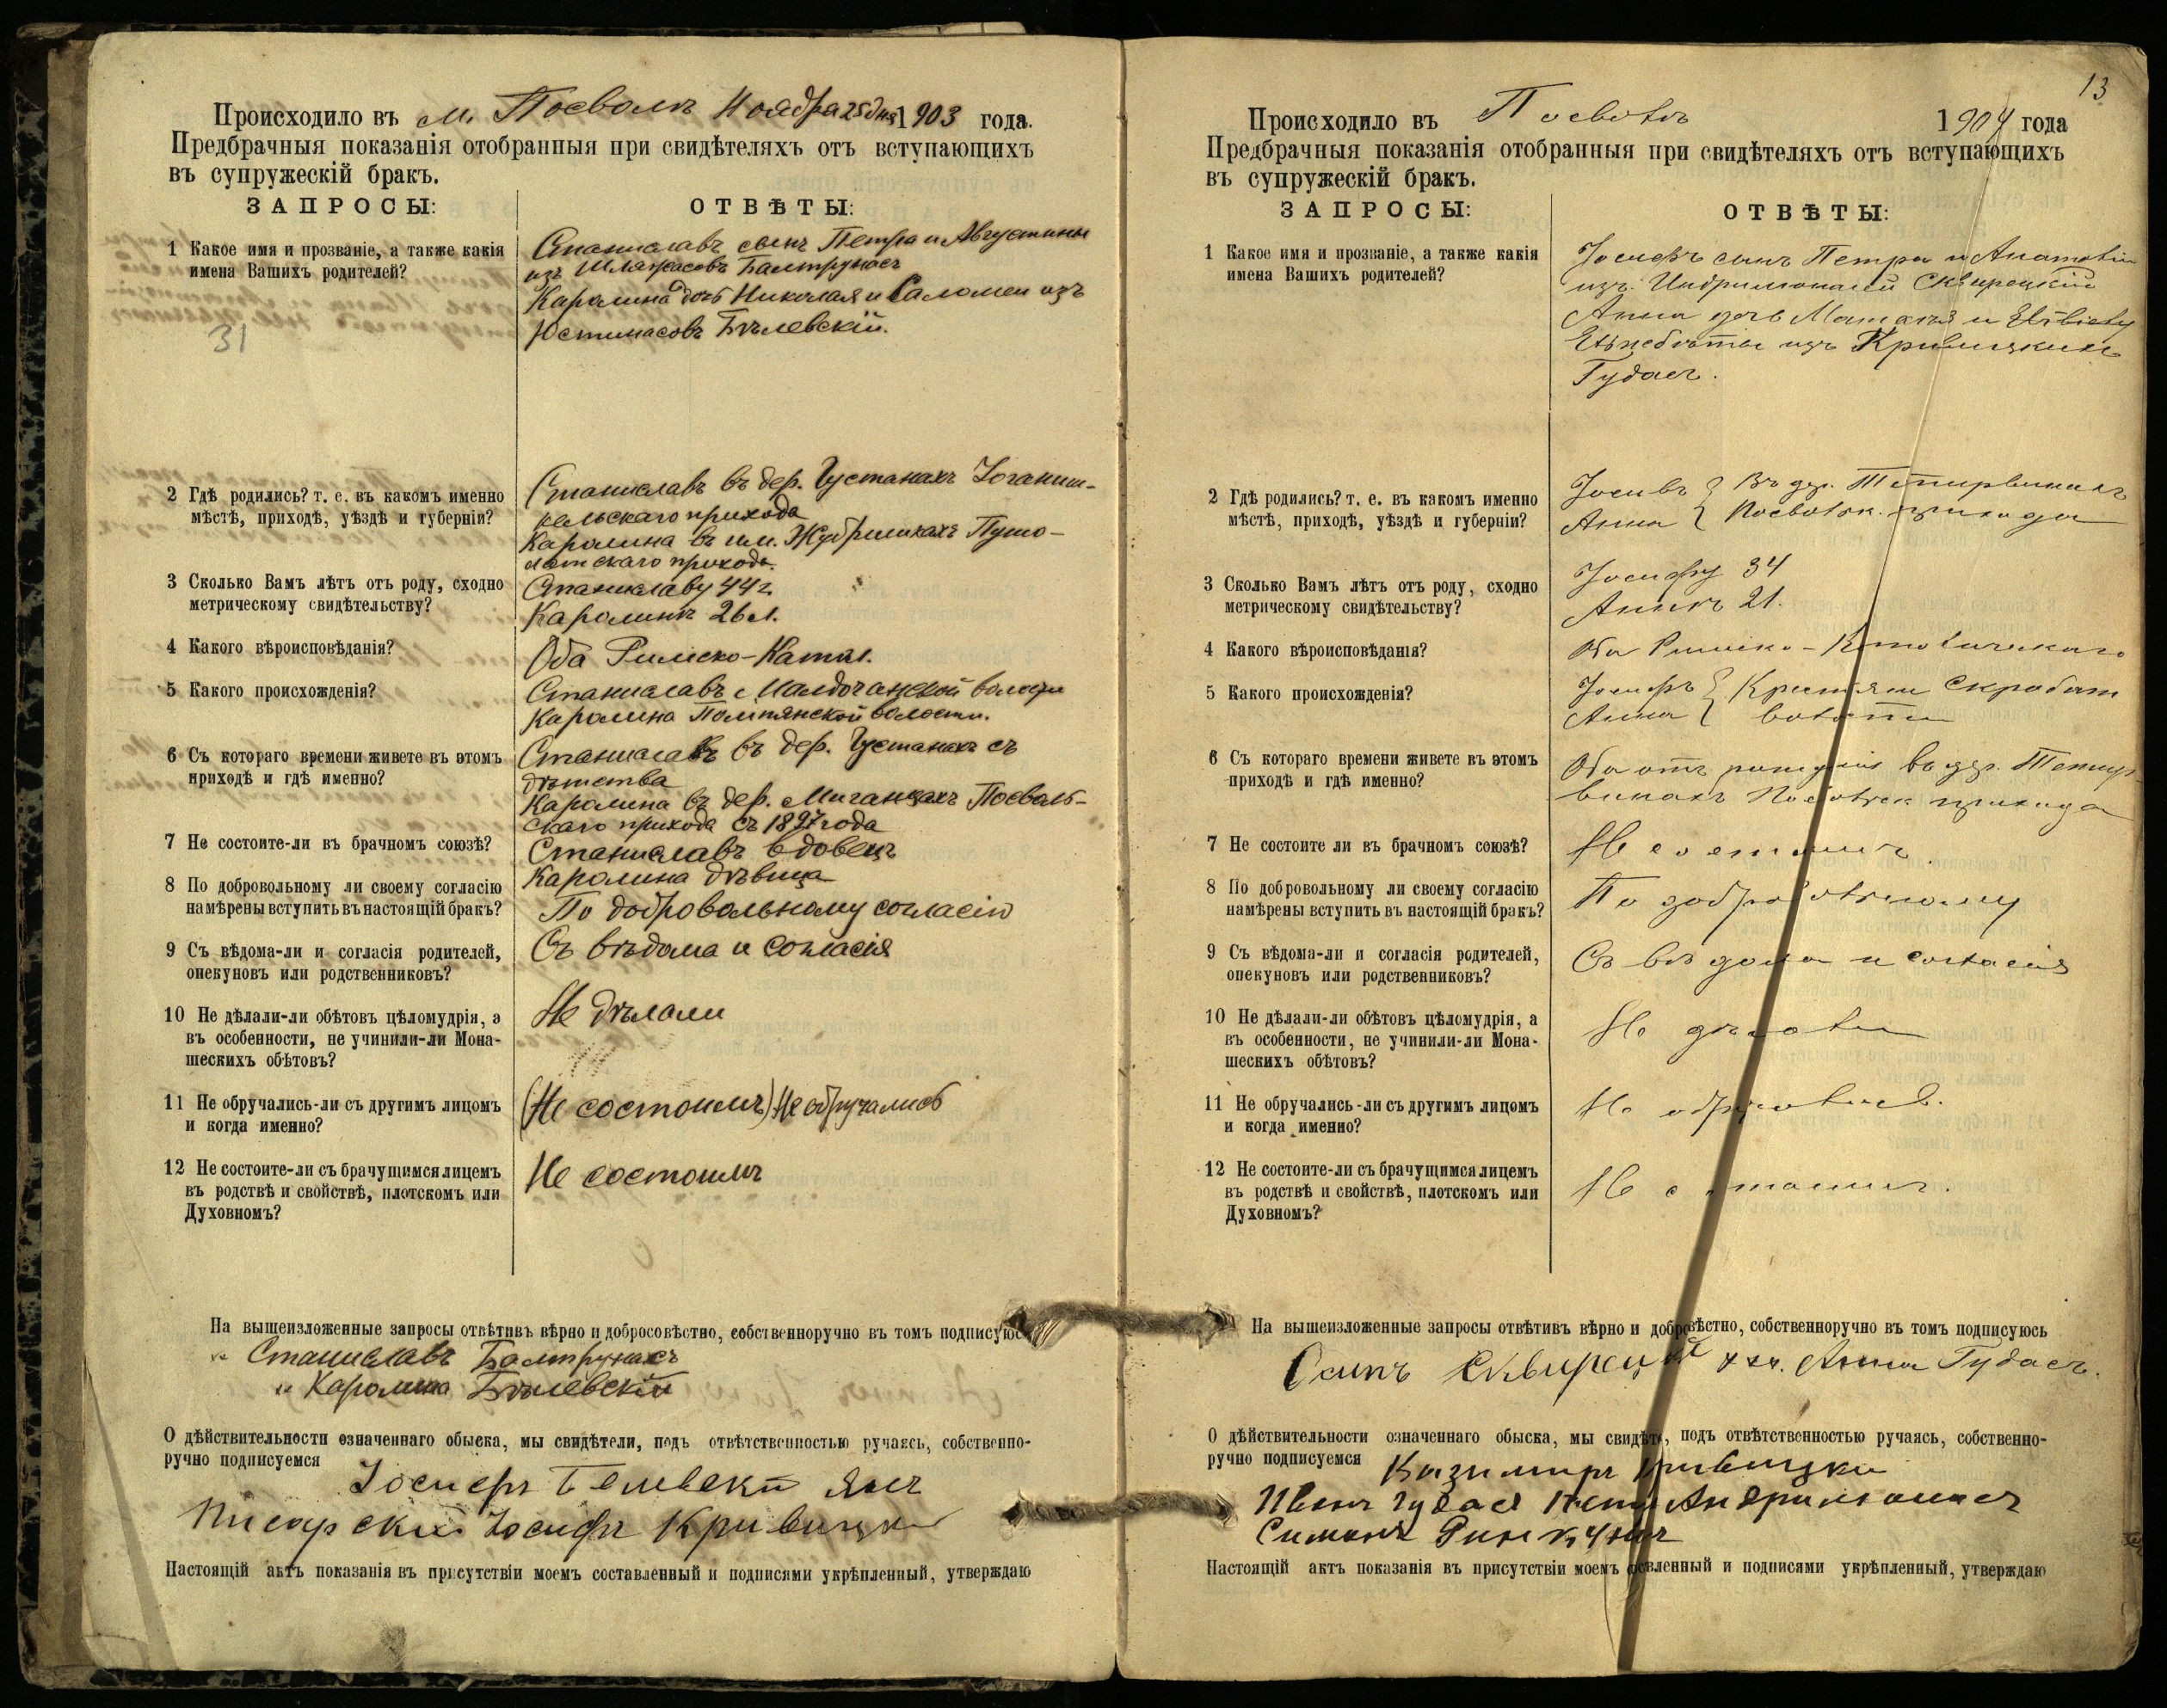 Происходило въ м. Посволѣ Ноября 25 дня 1903 года.
Предбрачныя показанія отобранныя при свидѣтеляхъ отъ вступающихъ
въ супружескій бракъ.
ЗАПРОСЫ:
ОТВѢТЫ:
1 Какое имя и прозваніе, а также какія
имена Вашихъ родителей?
Станиславъ сынъ Петра и Августины
изъ Балтрунасъ
Каролина дочь Николая и Саломеи изъ
Юстинасовъ Бѣлевскій.
31
2 Гдѣ родились? т. е. въ какомъ именно
мѣстѣ, приходѣ, уѣздѣ и губерніи?
Станиславъ въ дер. Густанахъ Іоганиш-
кельскаго прихода
Каролина въ им. Пушо-
латскаго прихода.
3 Сколько Вамъ лѣтъ отъ роду, сходно
метрическому свидѣтельству?
Станиславу 44 г.
Каролинѣ 26 л.
4 Какого вѣроисповѣданія?
Оба Римско-Катол.
5 Какого происхожденія?
Станиславъ волости
Каролина Помпянской волости.
6 Съ котораго времени живете въ этомъ
приходѣ и гдѣ именно?
Станиславъ въ дер. Густанахъ съ
дѣтства
Каролина въ дер. Мичанцахъ Посволь-
скаго прихода съ 1897 года
7 Не состоите-ли въ брачномъ союзѣ?
Станиславъ вдовецъ
Каролина дѣвица
8 По добровольному ли своему согласію
намѣрены вступить въ настоящій бракъ?
По добровольному согласію
9 Съ вѣдома-ли и согласія родителей,
опекуновъ или родственниковъ?
Съ вѣдома и согласія
10 Не дѣлали-ли обѣтовъ цѣломудрія, а
въ особенности, не учинили-ли Мона-
шескихъ обѣтовъ?
Не дѣлали
11 Не обручались-ли съ другимъ лицомъ
и когда именно?
(Не состоимъ) Не обручались
12 Не состоите-ли съ брачущимся лицемъ
въ родствѣ и свойствѣ, плотскомъ или
Духовномъ?
Не состоимъ
На вышеизложенные запросы отвѣтивъ вѣрно и добросовѣстно, собственноручно въ томъ подписуюсь
Станиславъ Балтрунасъ
и Каролина Бѣлевскій
О дѣйствительности означеннаго обыска, мы свидѣтели, подъ отвѣтственностью ручаясь, собственно-
ручно подписуемся
Іосифъ
Іосифъ Кривицки
Настоящій актъ показанія въ присутствіи моемъ составленный и подписями укрѣпленный, утверждаю
13
Происходило въ Посволѣ 1904 года
Предбрачныя показанія отобранныя при свидѣтеляхъ отъ вступающихъ
въ супружескій бракъ.
ЗАПРОСЫ:
ОТВѢТЫ:
1 Какое имя и прозваніе, а также какія
имена Вашихъ родителей?
Іосифъ сынъ Петра и Анатоліи
изъ Сквирецкій
Анна дочь Матвѣя и Elżbiety
Ельжбѣты изъ Кривицкихъ
Гудасъ.
2 Гдѣ родились? т. е. въ какомъ именно
мѣстѣ, приходѣ, уѣздѣ и губерніи?
Іосифъ } въ дер. Тетирвинахъ
Анна } Посвольск. прихода
3 Сколько Вамъ лѣтъ отъ роду, сходно
метрическому свидѣтельству?
Іосифу 34
Аннѣ 21.
4 Какого вѣроисповѣданія?
Оба Римско-Католическаго
5 Какого происхожденія?
Іосифъ } Крестьяне Скробот
Анна } волости
6 Съ котораго времени живете въ этомъ
приходѣ и гдѣ именно?
Оба отъ рожденія въ дер. Тетир-
винахъ Посвольск прихода
7 Не состоите ли въ брачномъ союзѣ?
Не состоимъ
8 По добровольному ли своему согласію
намѣрены вступить въ настоящій бракъ?
По добровольному
9 Съ вѣдома-ли и согласія родителей,
опекуновъ или родственниковъ?
Съ вѣдома и согласія
10 Не дѣлали-ли обѣтовъ цѣломудрія, а
въ особенности, не учинили-ли Мона-
шескихъ обѣтовъ?
Не дѣлали
11 Не обручались-ли съ другимъ лицомъ
и когда именно?
Не обручались.
12 Не состоите-ли съ брачущимся лицемъ
въ родствѣ и свойствѣ, плотскомъ или
Духовномъ?
Не состоимъ.
На вышеизложенные запросы отвѣтивъ вѣрно и добросовѣстно, собственноручно въ томъ подписуюсь
Осипъ Сквирецкій Анна Гудасъ.
О дѣйствительности означеннаго обыска, мы свидѣте, подъ отвѣтственностью ручаясь, собственно-
ручно подписуемся
Казимиръ Кривицки
Иванъ Гудас Андрилюнасъ
Симонъ
Настоящій актъ показанія въ присутствіи моемъ ставленный и подписями укрѣпленный, утверждаю